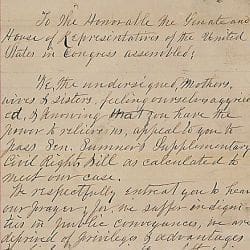 To The Honorable the Senate and
House of Representatives of the United
States in Congress assembled;
We, the undersigned, Mothers,
wives & Sisters, feeling ourselves aggreev
ed, & Knowing that you have the
power to relieve us, appeal to you to
pass Sen. Sumner's Supplimentary
Civil Rights Bill as calculated to
meet our case.
We respectfully entreat you to hear
our prayer; for, we suffer indigni
ties in public conveyances, we are
deprived of privileges & advantages